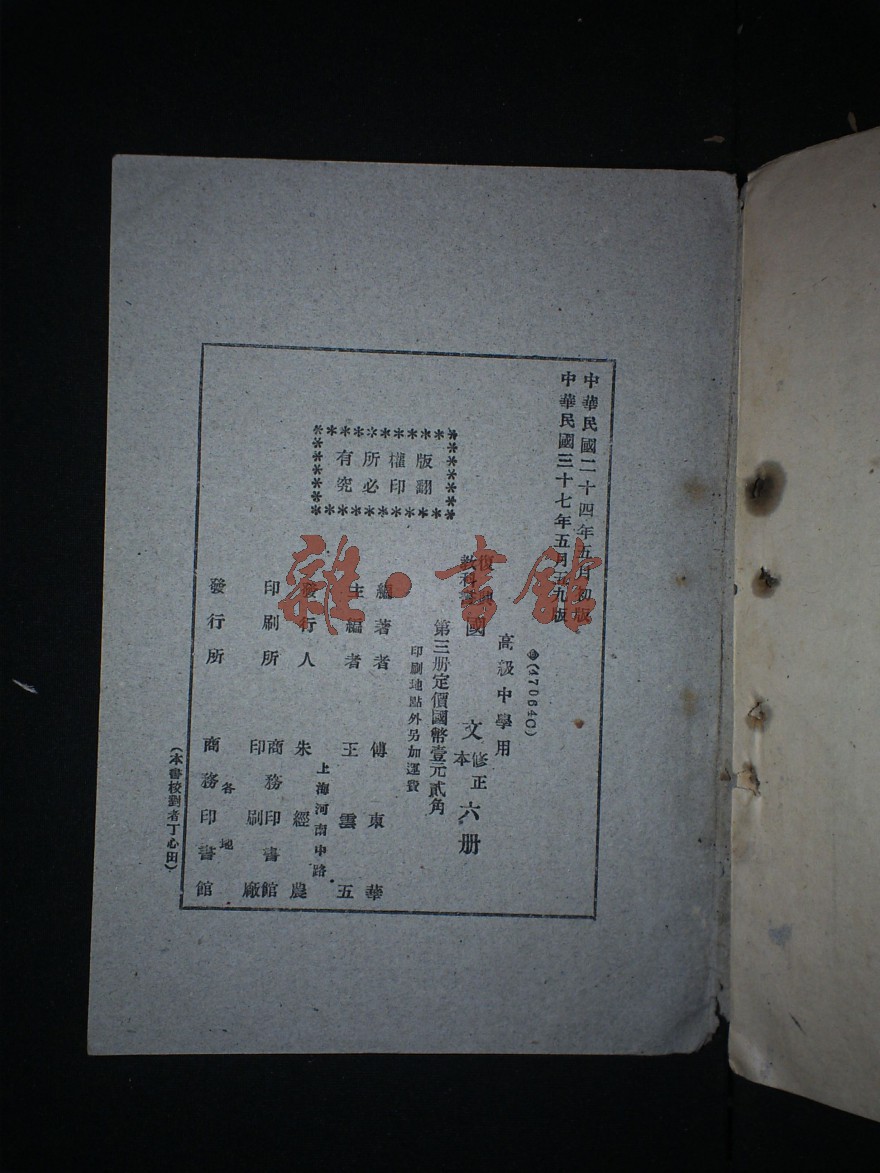 中華民國二十四年五月初版
中華民國三十七年五月五九版
(47064G)
高級中學用
復興
教科書 國文 修正本 六册
第三册定價國幣壹元貳角
印刷地點外另加運費
版權所有
翻印必究
編著者 傅東華
主編者 王雲五
上海河南中路
發行人 朱經農
印刷所 商務印書館印刷廠
各地
發行所 商務印書館
(本書校對者丁心田)
雜·書館